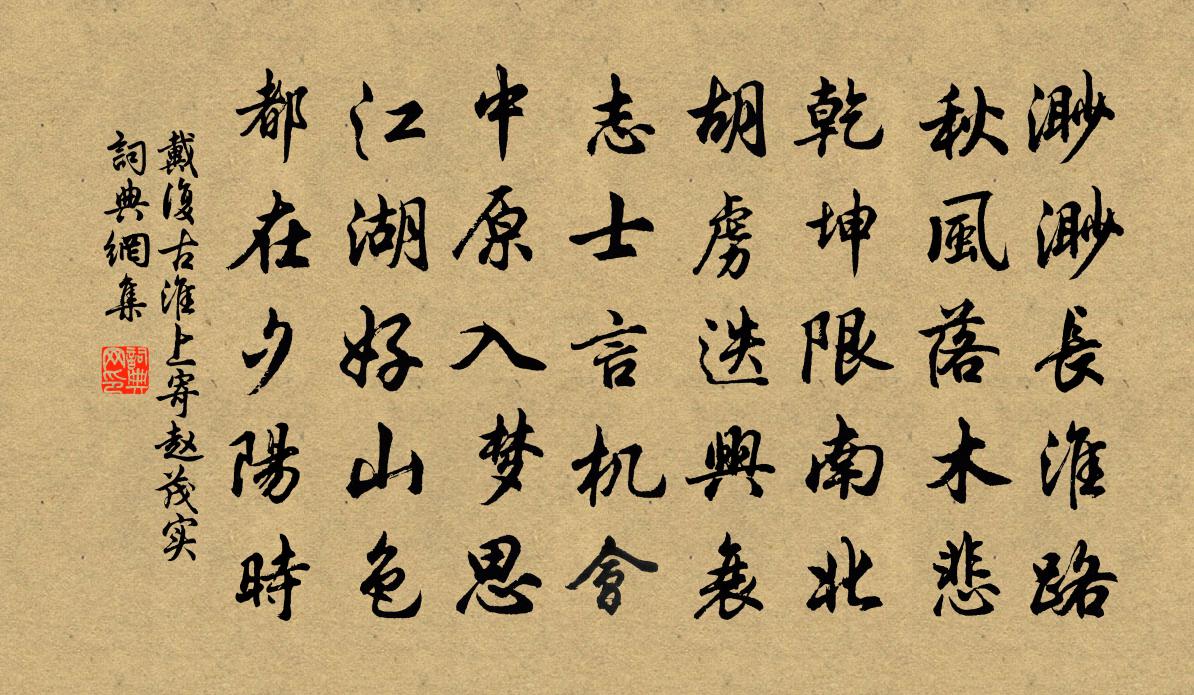 渺渺長淮路
秋風落木悲
乾坤限南北
胡虜迭興衰
志士言机會
中原入梦思
江湖好山色
都在夕陽時
戴復古淮上寄赵茂实
詞典網集
詞典网印